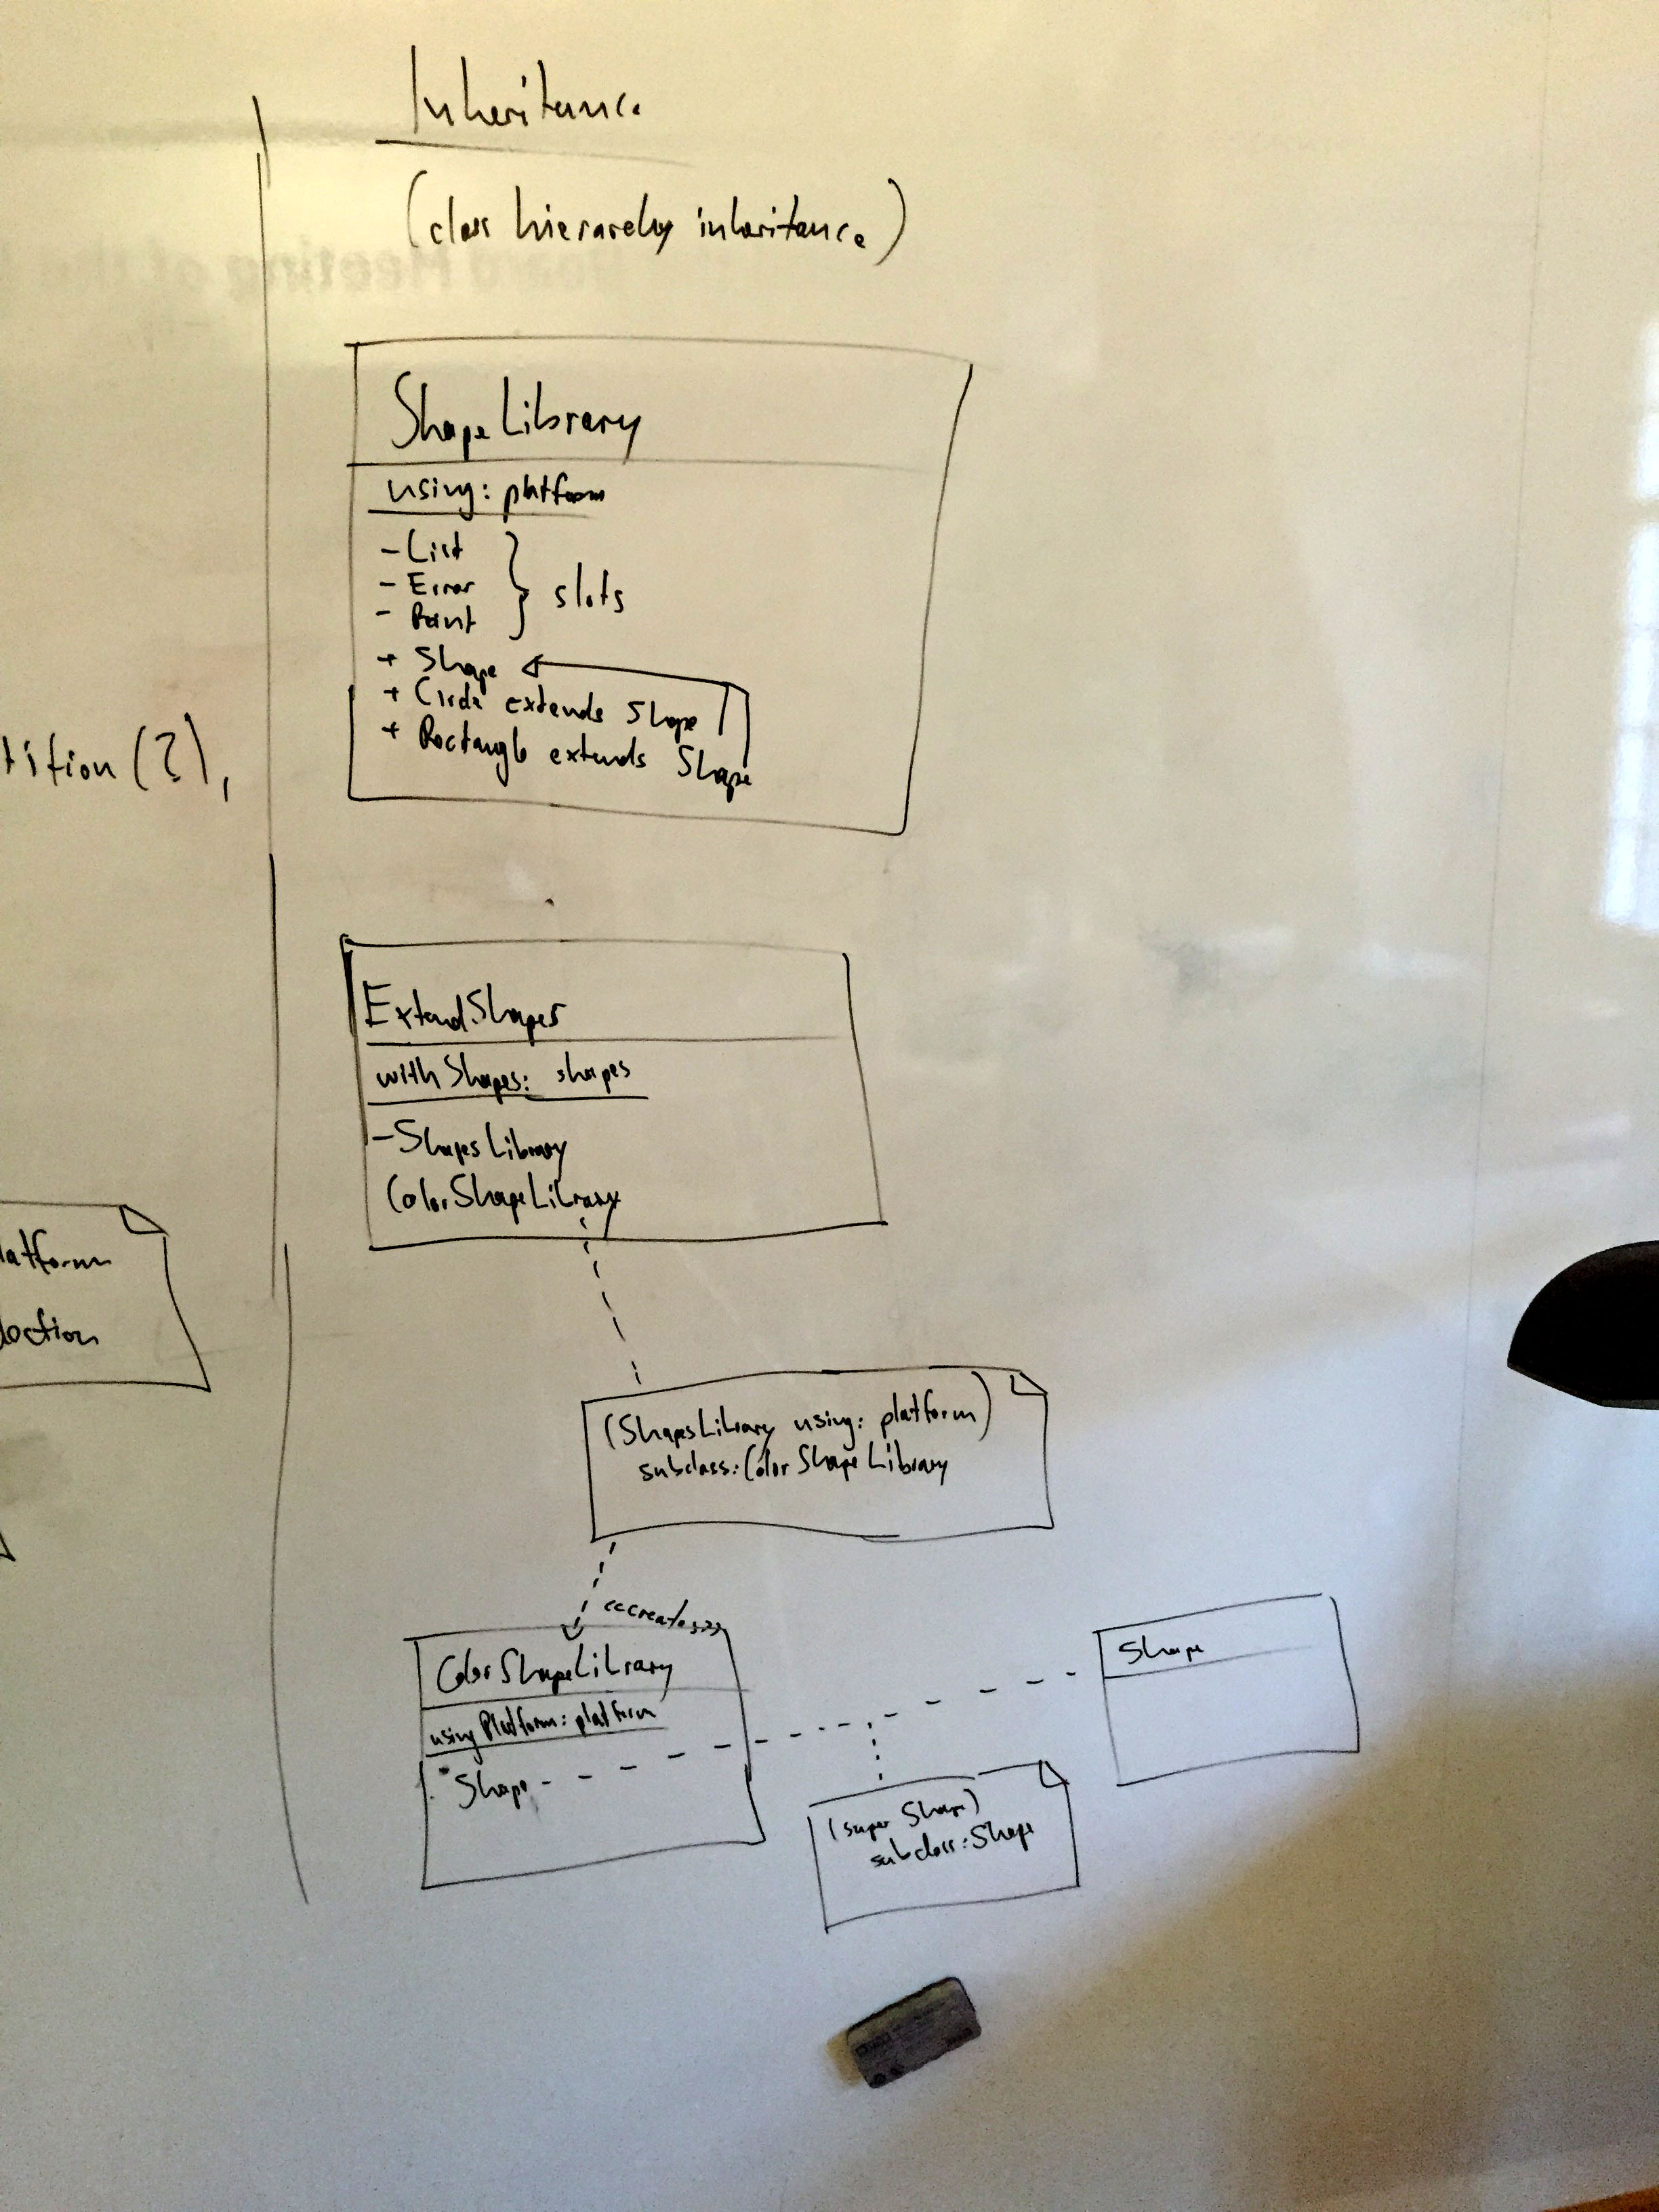 Inheritance
(class hierarchy inheritance)
Board Meeting of the
ShapeLibrary
using: platform
- List
- Error
- Point
} slots
+ Shape
+ Circle extends Shape
+ Rectangle extends Shape
tition (?),
ExtendShapes
withShapes: shapes
- ShapesLibrary
ColorShapeLibrary
latform
lection
(ShapesLibrary using: platform)
subclass: ColorShapeLibrary
<<creates>>
ColorShapeLibrary
usingPlatform: platform
Shape
Shape
(super Shape)
subclass: Shape